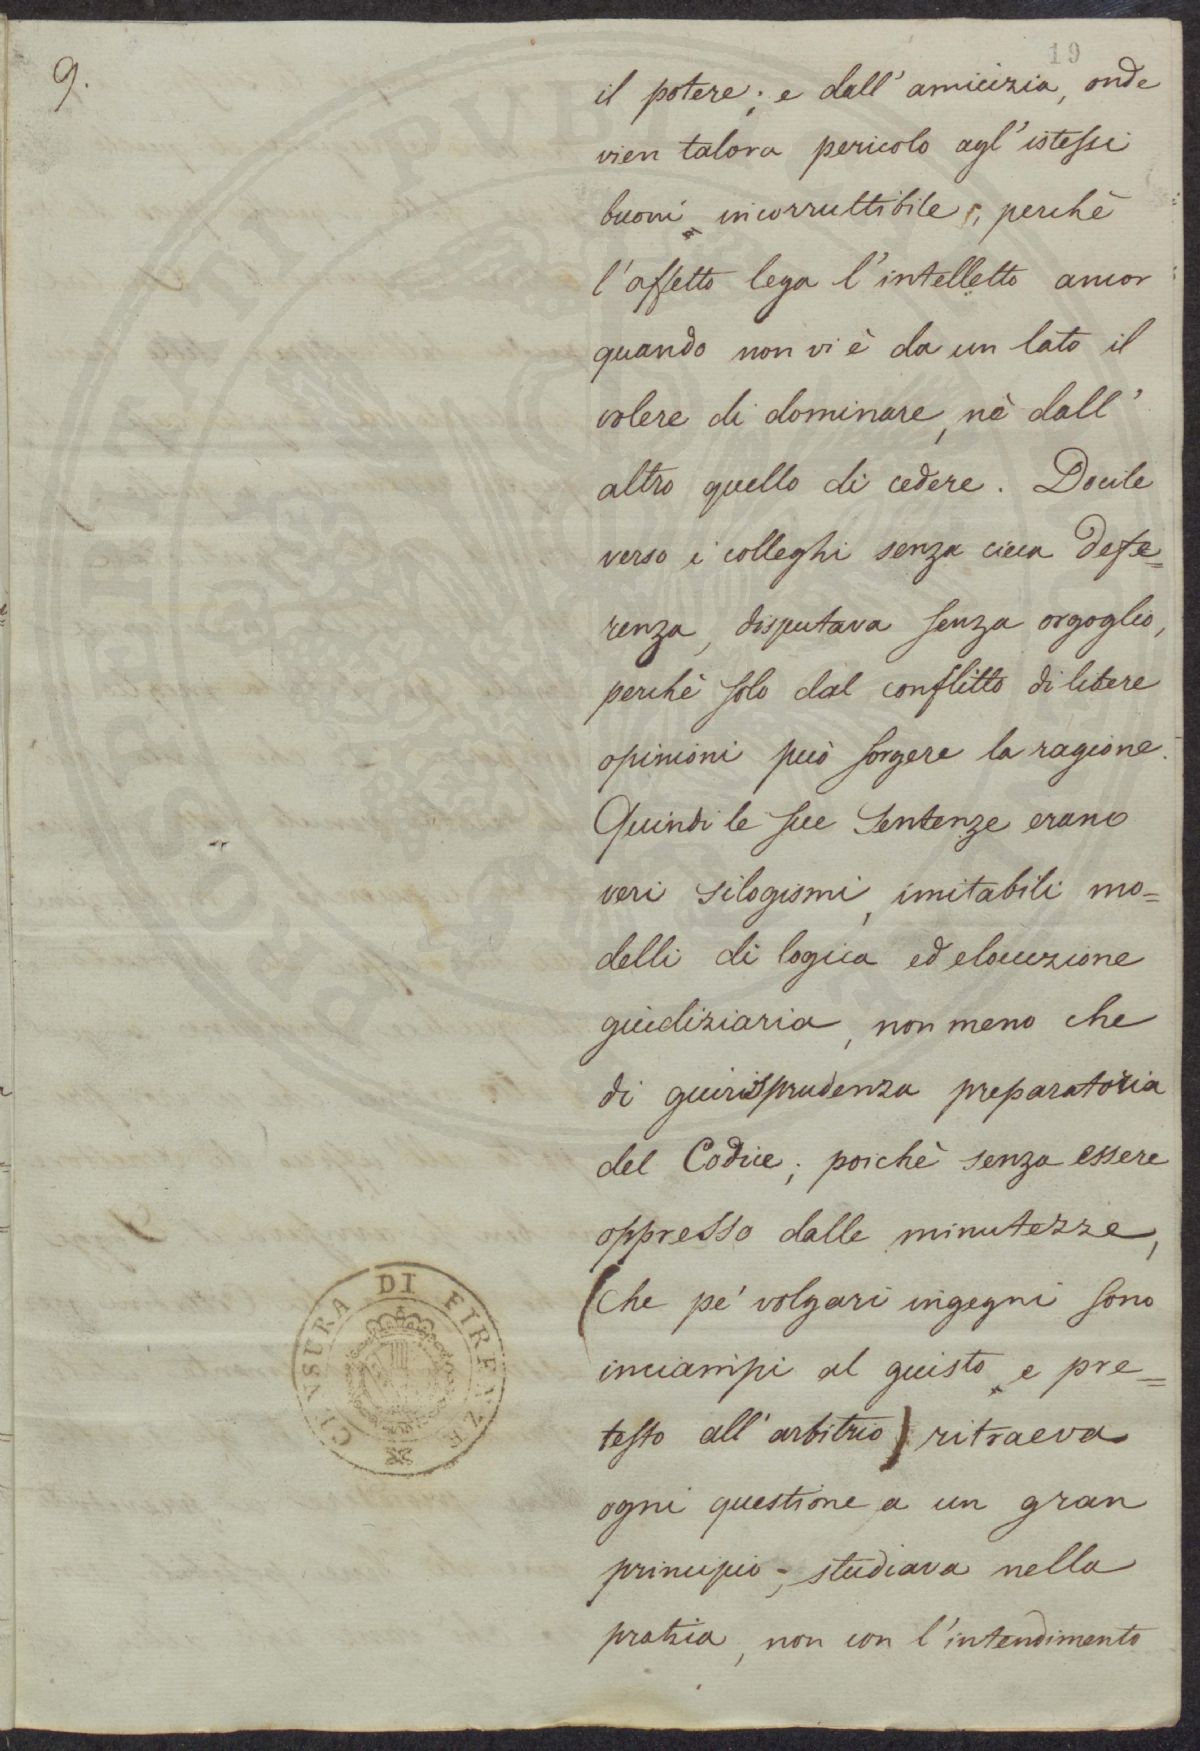 19
9.
il potere; e dall'amicizia, onde
vien talora pericolo agl'istessi
buoni, incorruttibile, perchè
l'affetto lega l'intelletto ancor
quando non vi è da un lato il
volere di dominare, nè dall'
altro quello di cedere. Docile
verso i colleghi senza cieca defe=
renza, disputava senza orgoglio,
perchè solo dal conflitto di libere
opinioni può sorgere la ragione.
Quindi le sue Sentenze erano
veri silogismi, imitabili mo=
delli di logica ed elocuzione
giudiziaria, non meno che
di giurisprudenza preparatoria
del Codice; poichè senza essere
oppresso dalle minutezze,
(che pe' volgari ingegni sono
inciampi al giusto, e pre=
testo all'arbitrio) ritraeva
ogni questione a un gran
principio; studiava nella
pratica, non con l'intendimento
CENSURA DI FIRENZE